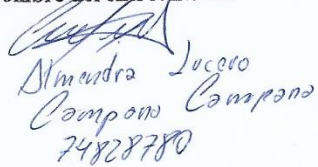 Almendra Lucero
Campana Campana
74828780